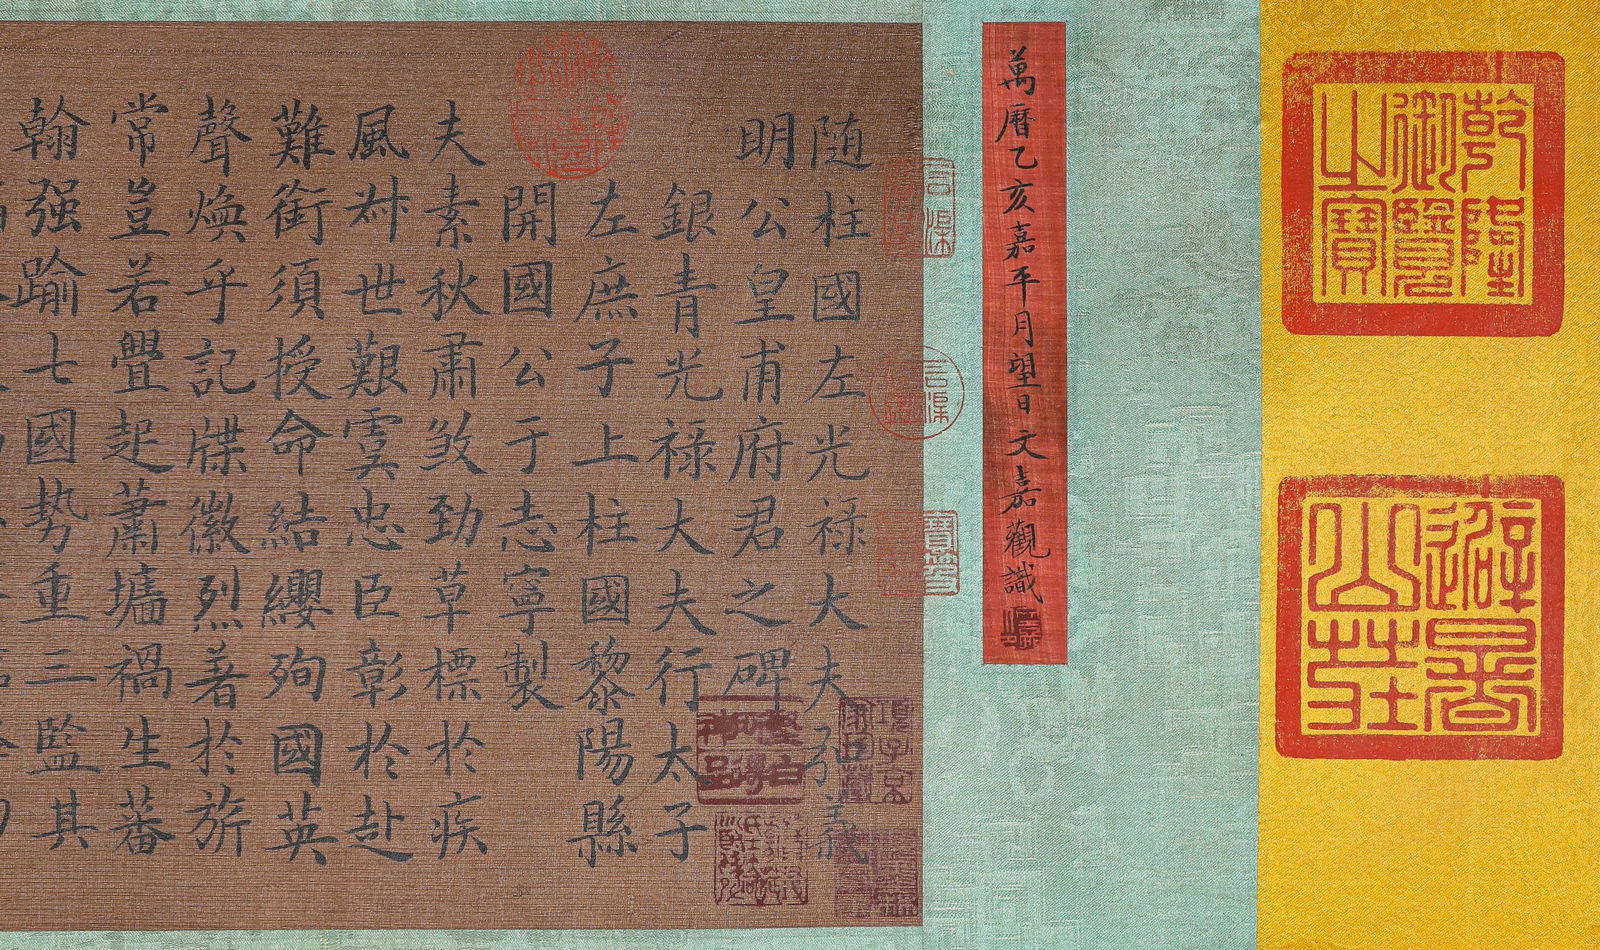 乾隆御覽之寶
避暑山莊
萬曆乙亥嘉平月望日文嘉觀識
随柱國左光禄大夫弘義
明公皇甫府君之碑
銀青光禄大夫行太子
左庶子上柱國黎陽縣
開國公于志寧製
夫素秋肅煞勁草標於疾
風叔世艱虞忠臣彰於赴
難銜須授命結纓殉國英
聲煥乎記牒徽烈著於旂
常豈若舋起蕭墻禍生蕃
翰强踰七國勢重三監其